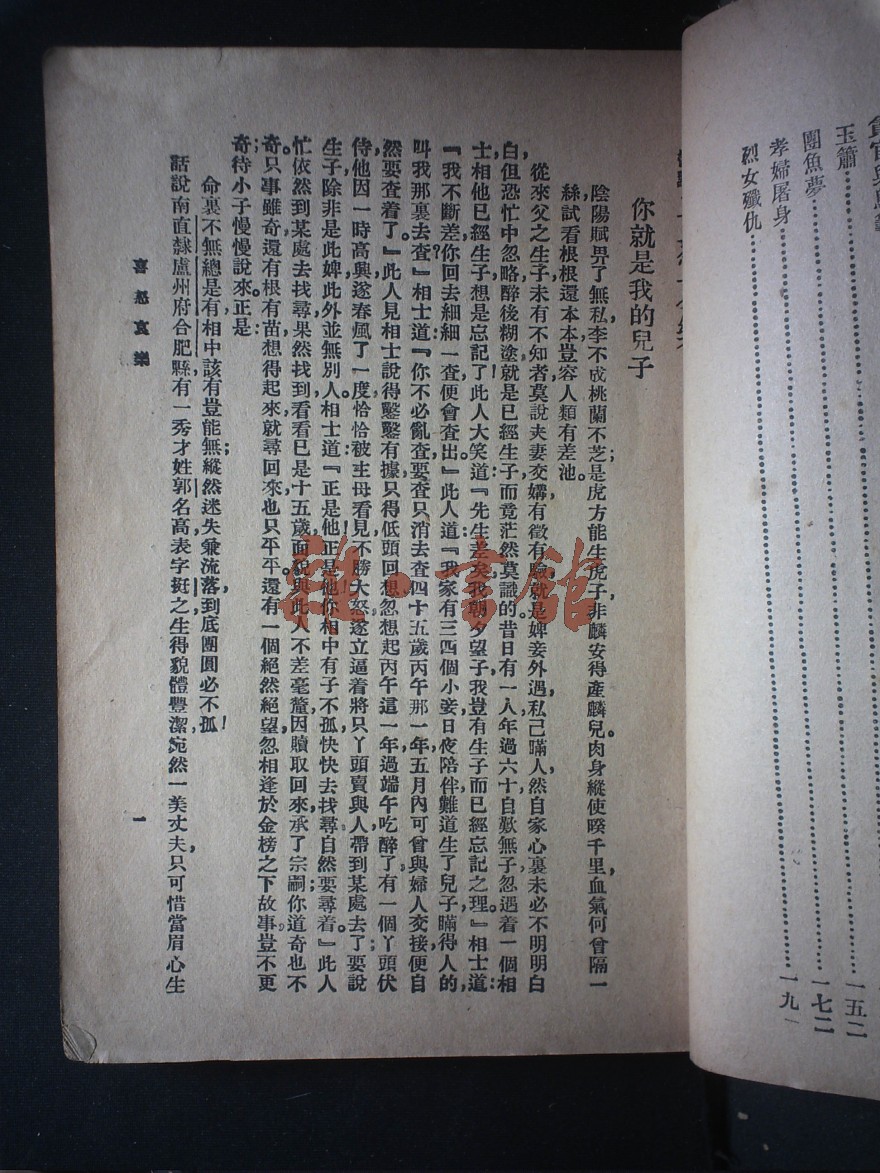 你就是我的兒子
陰陽賦畀了無私，李不成桃蘭不芝；是虎方能生虎子，非麟安得產麟兒。肉身縱使暌千里，血氣何曾隔一
絲試看根根還本本，豈容人類有差池。
從來父之生子，未有不知者，莫說夫妻交媾，有徵有驗，就是婢妾外遇，私己瞞人，然自家心裏，未必不明明白
白，但恐忙中忽略，醉後糊塗，就是已經生子，而竟茫然莫識的，昔日有一人，年過六十，自歎無子，忽遇着一個相
士，相他已經生子，想是忘記了，此人大笑道：『先生差矣，我朝夕望子，我豈有生子而已經忘記之理。』相士道：
『我不斷差，你回去細細一查，便會查出。』此人道：『我家有三四個小妾，日夜陪伴，難道生了兒子，瞞得人的，
叫我那裏去查？』相士道：『你不必亂查，要查只消去查四十五歲丙午那一年，五月內可曾與婦人交接，便自
然要查着了。』此人見相士說得鑿鑿有據，只得低頭回想，忽想起丙午這一年過端午，吃醉了，有一個丫頭伏
侍他，因一時高興，遂春風了一度，恰恰被主母看見，不勝大怒，遂立逼着將只丫頭賣與人，帶到某處去了；要說
生子，除非是此婢，此外並無別人。相士道：『正是他！正是他！你相中有子不孤，快快去找尋，自然要尋着。』此人
忙依然到某處去找尋，果然找到，看看已是十五歲，面貌與此人不差毫釐，因贖取回來，承了宗嗣，你道奇也不
奇。只事雖奇，還有根有苗，想得起來，就尋回來，也只平平；還有一個絕然絕望，忽相逢於金榜之下，故事豈不更
奇；待小子慢慢說來。正是：
命裏不無總是有，相中該有豈能無；縱然迷失兼流落，到底團圓必不孤！
話說南直隸盧州府合肥縣，有一秀才，姓郭名高，表字挺之，生得貌體豐潔，宛然一美丈夫，只可惜當眉心生
喜怒哀樂
一
玉簫……………………一五二
團魚夢……………………一七二
孝婦屠身……………………一九
烈女殲仇
雜·書館